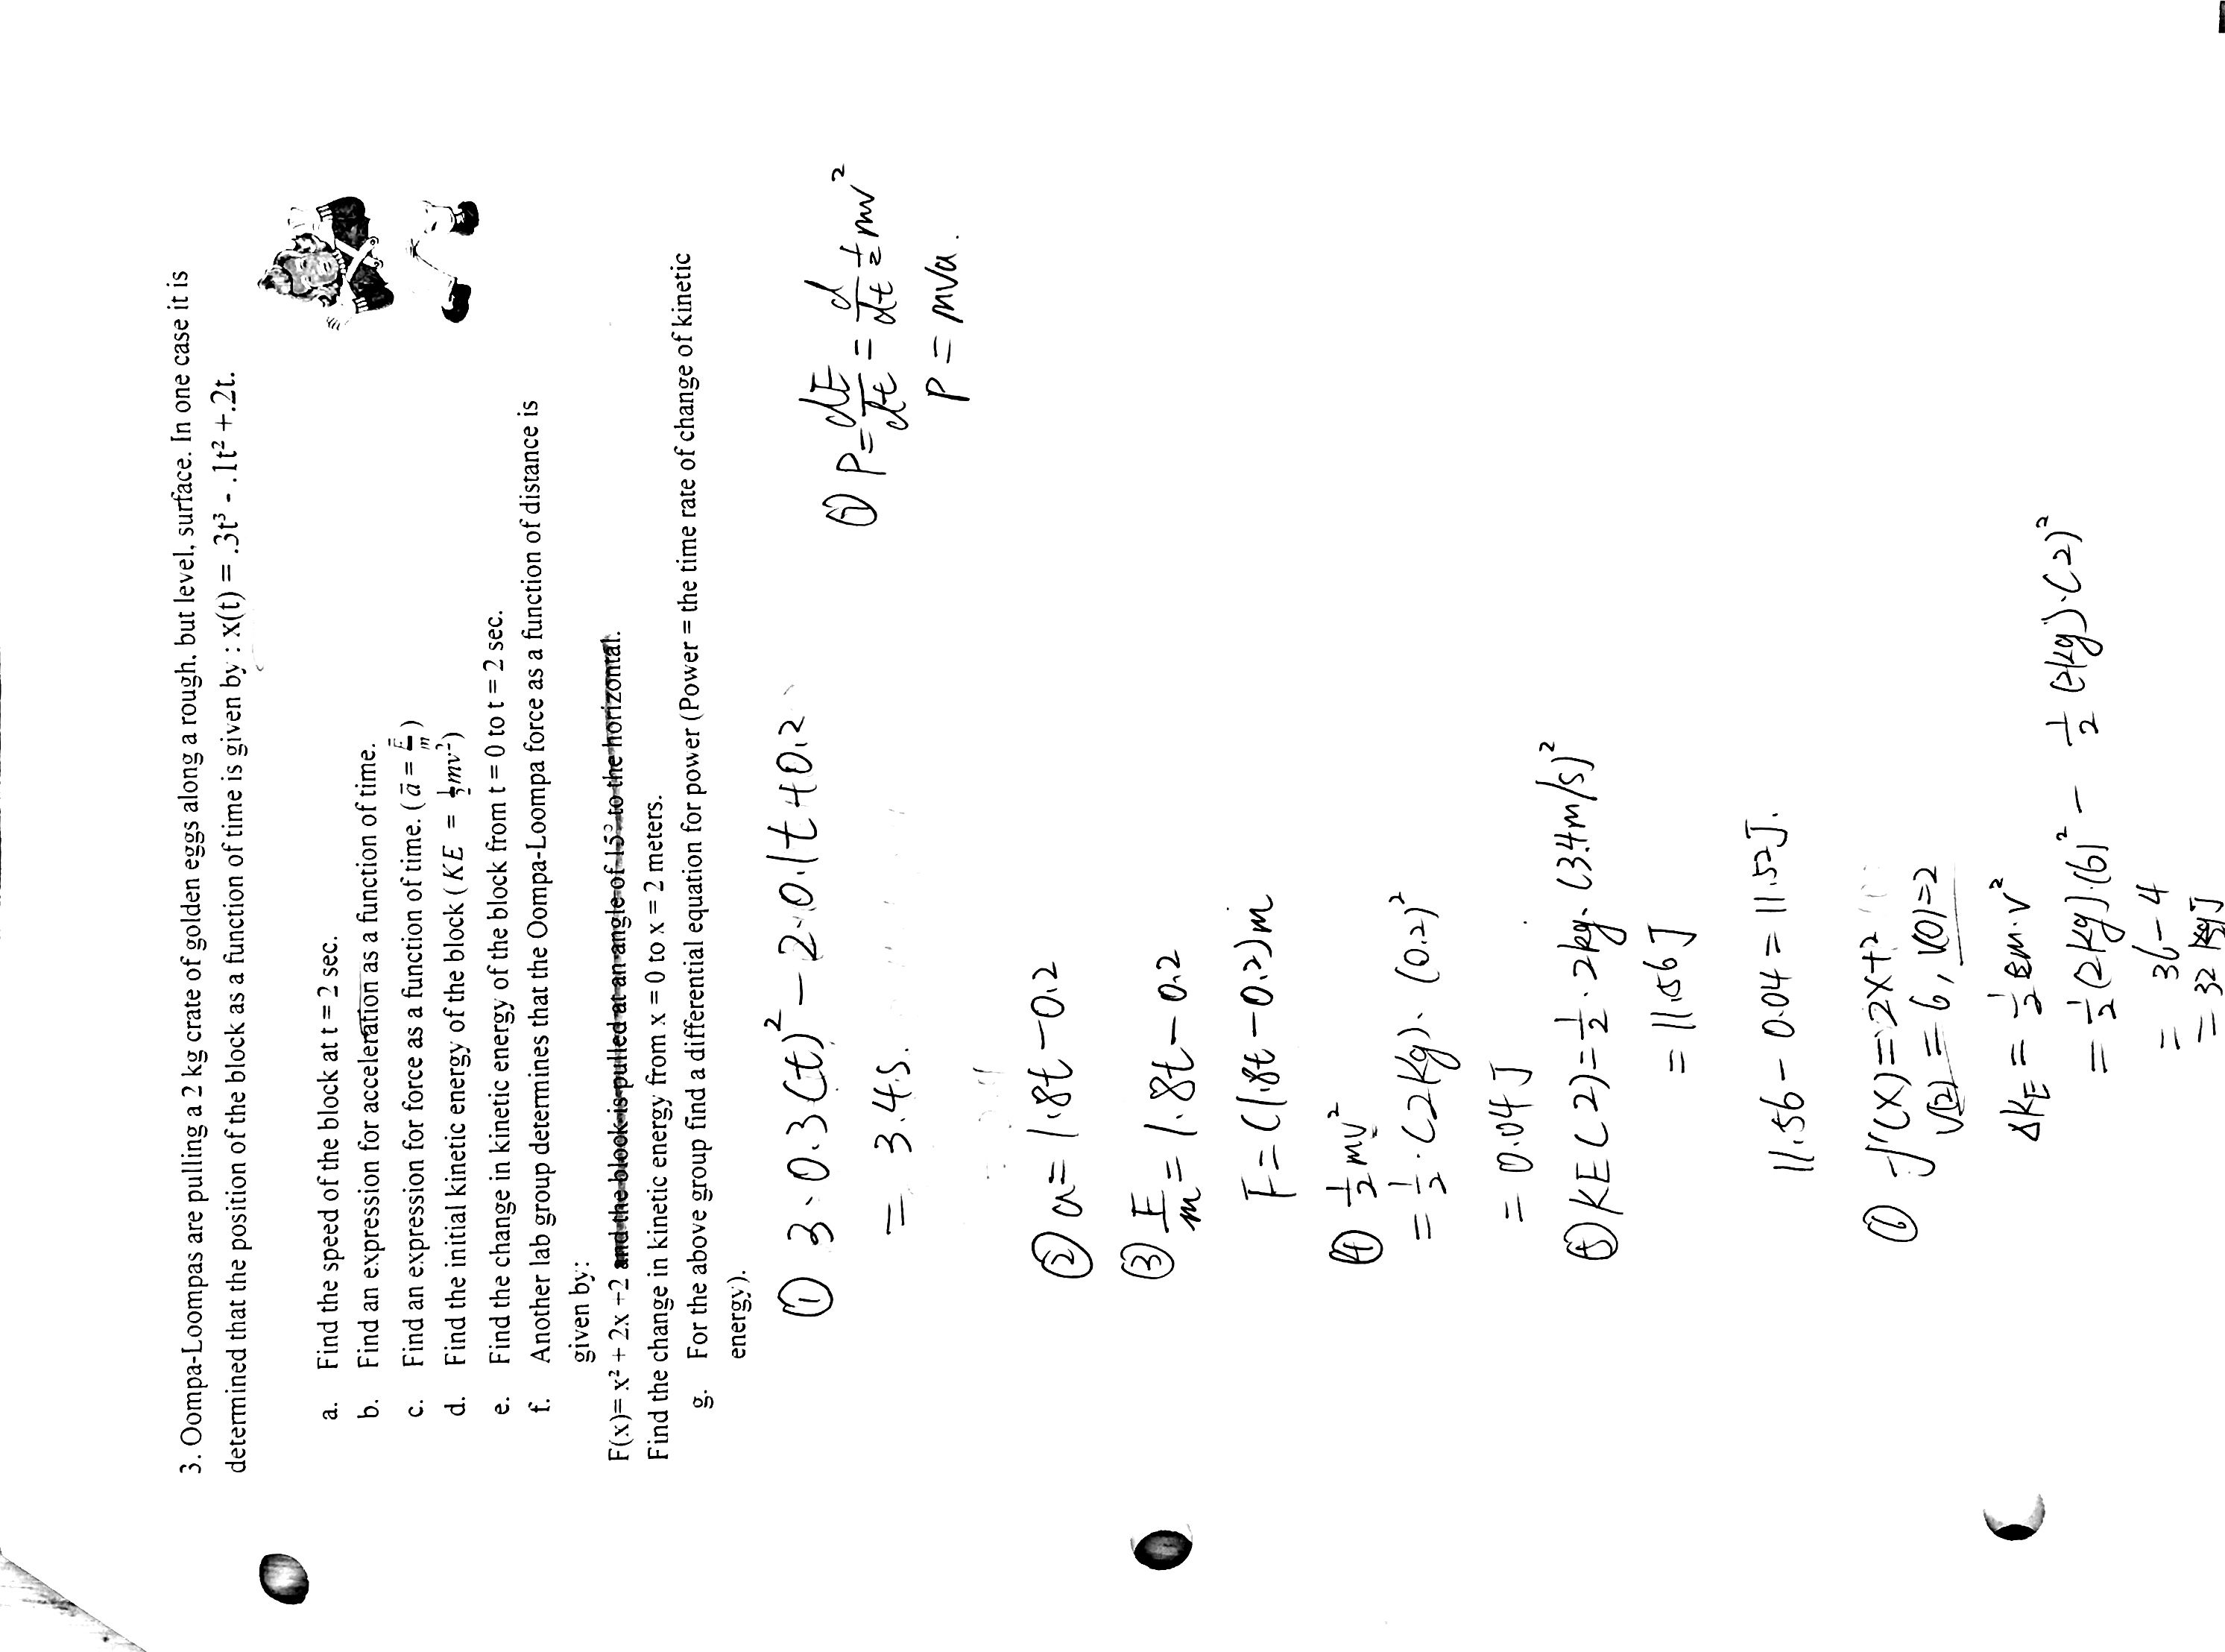 3. Oompa-Loompas are pulling a 2 kg crate of golden eggs along a rough, but level, surface. In one case it is
determined that the position of the block as a function of time is given by : x(t) = .3t³ - .1t² +.2t.
a. Find the speed of the block at t = 2 sec.
b. Find an expression for acceleration as a function of time.
c. Find an expression for force as a function of time. ( ā = F̄/m )
d. Find the initial kinetic energy of the block ( KE = ½mv²)
e. Find the change in kinetic energy of the block from t = 0 to t = 2 sec.
f. Another lab group determines that the Oompa-Loompa force as a function of distance is
given by:
F(x)= x² + 2x +2 and the block is pulled at an angle of 15° to the horizontal.
Find the change in kinetic energy from x = 0 to x = 2 meters.
g. For the above group find a differential equation for power (Power = the time rate of change of kinetic
energy).
① 3·0.3(t)² - 2·0.1t+0.2
= 3.4s.
② a= 1.8t-0.2
③ F/m = 1.8t-0.2
F=(1.8t-0.2)m
④ ½mv²
= ½·(2kg)·(0.2)²
= 0.04 J
⑤ KE(2)=½·2kg·(3.4m/s)²
= 11.56 J
11.56 - 0.04 = 11.52J.
⑥ f'(x)=2x+2
V(2) = 6, V(0)=2
ΔKE = ½ m·v²
= ½(2kg)·(6)² - ½(2kg)·(2)²
= 36-4
= 32 J
P=dE/dt = d/dt ½mv²
P = mva.